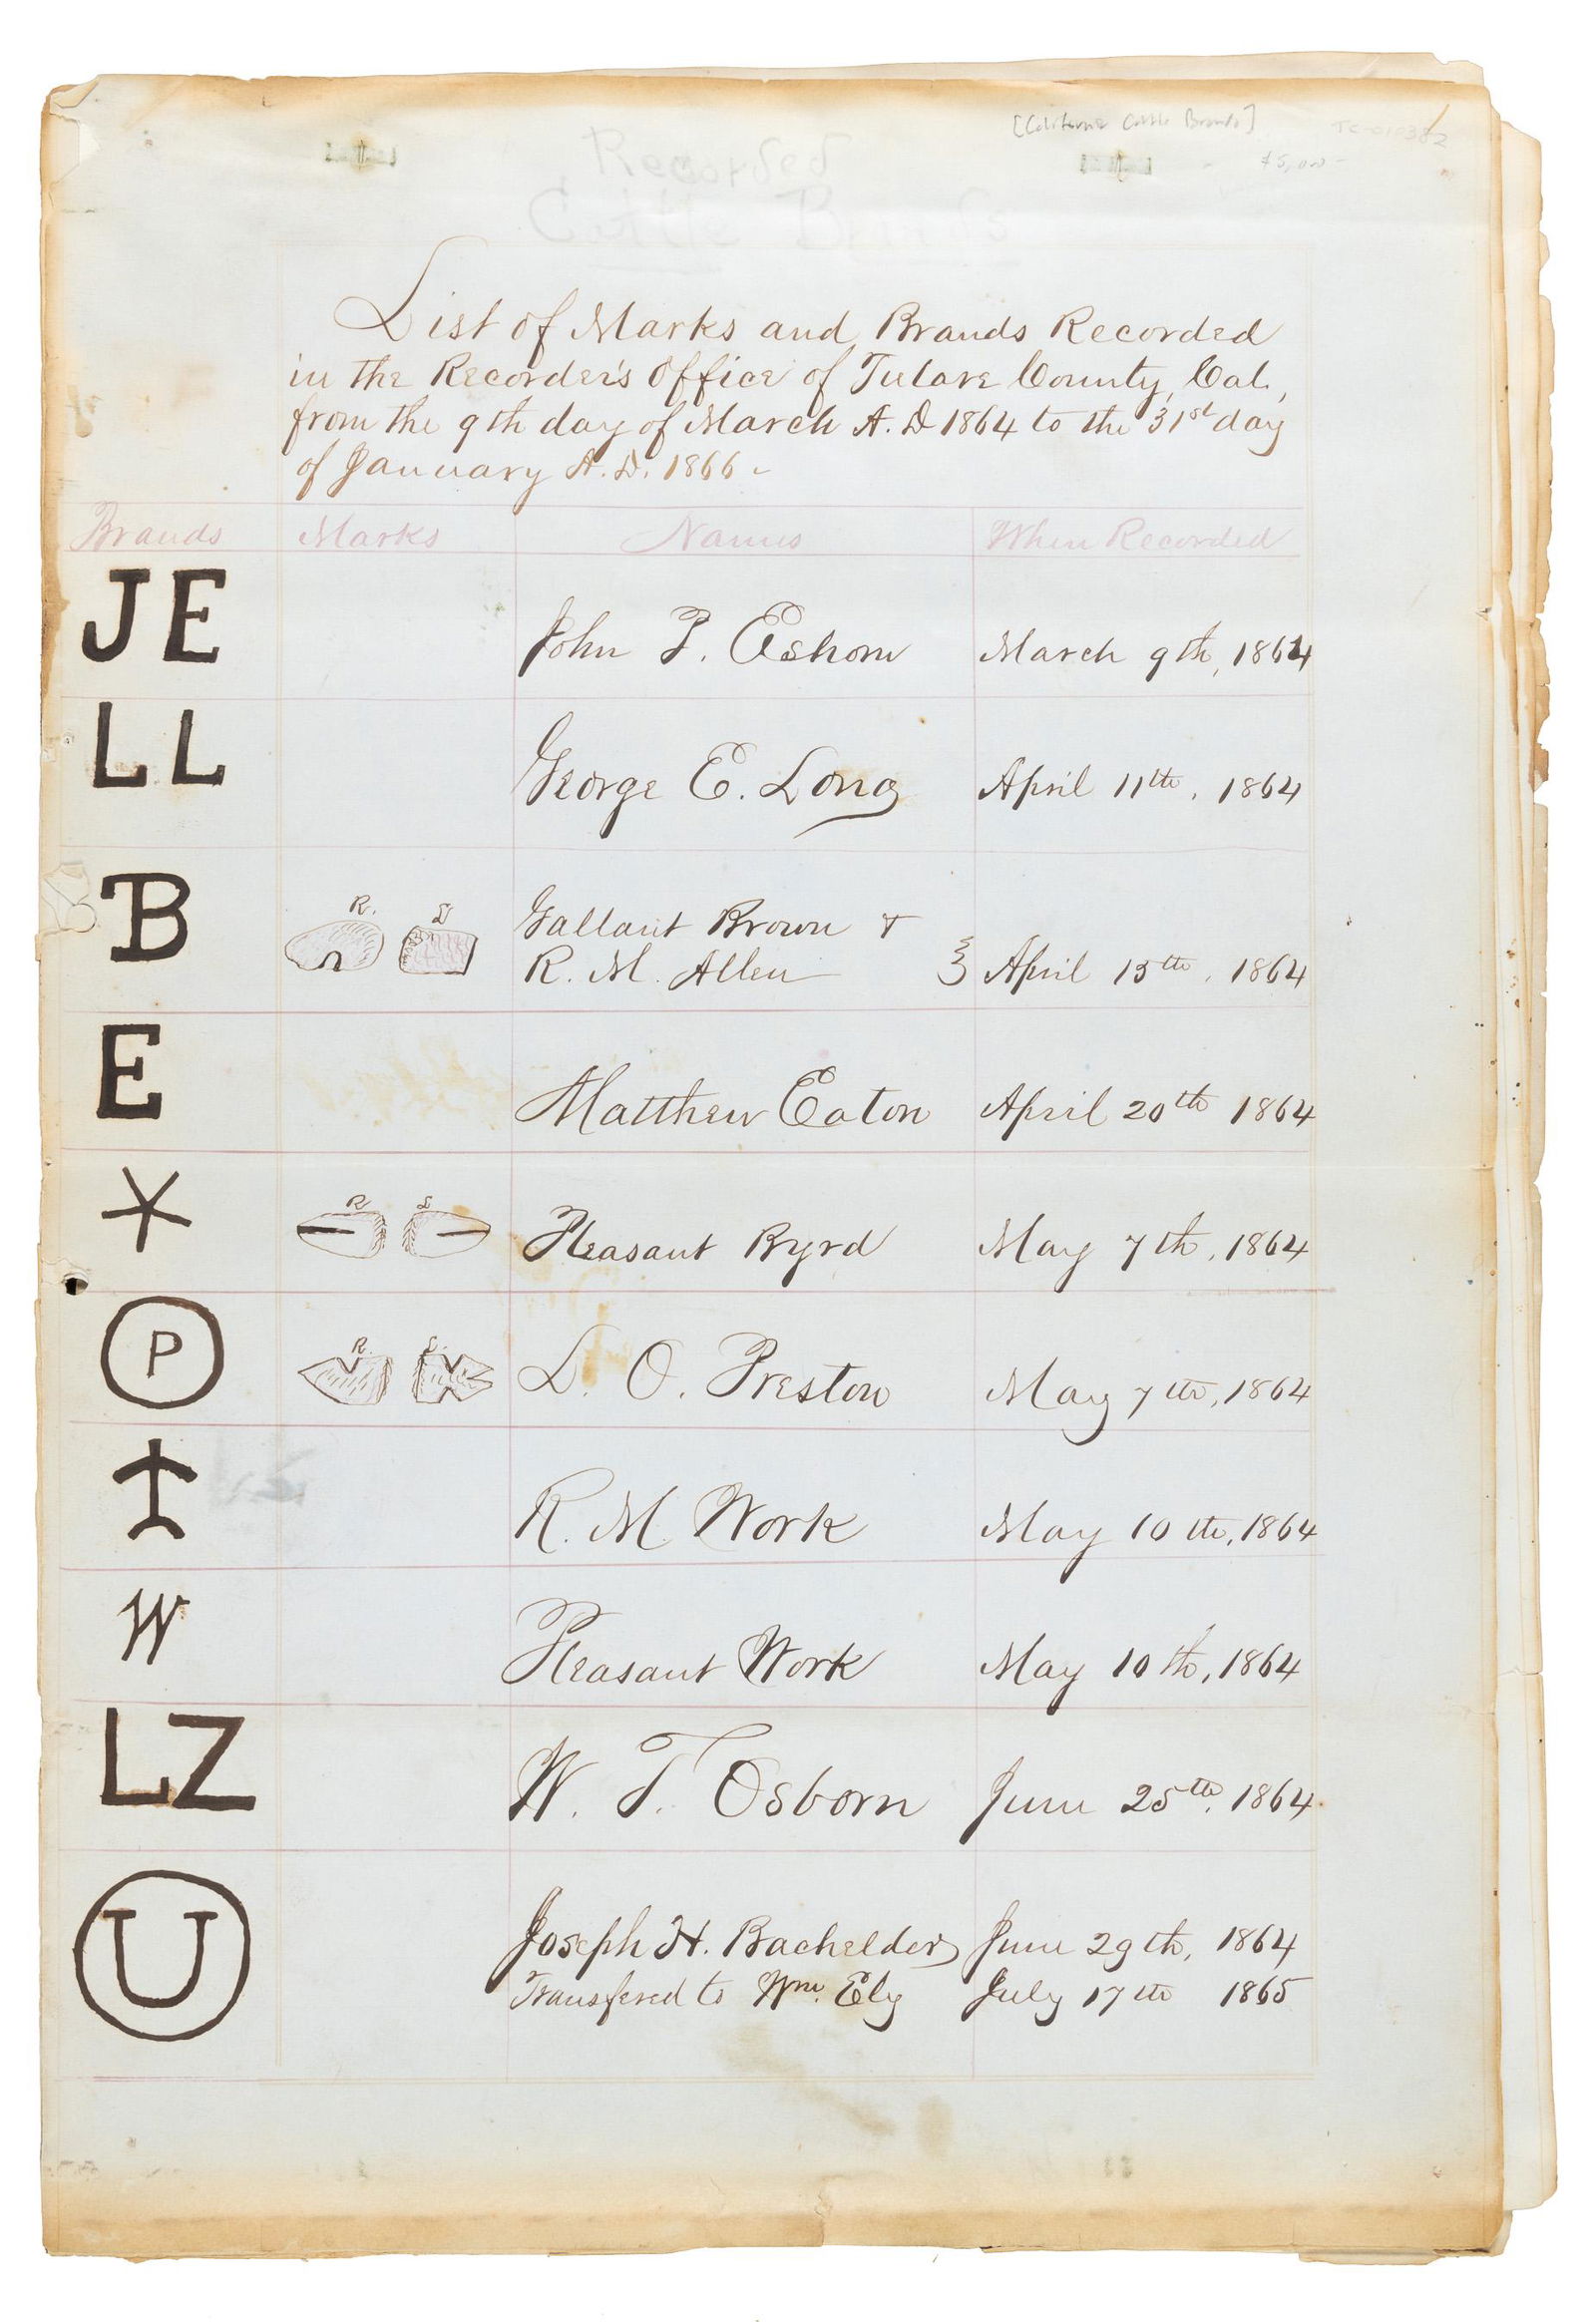 [California Cattle Brands]
$5,000-
Recorded
Cattle Brands
List of Marks and Brands Recorded
in the Recorder's Office of Tulare County, Cal.,
from the 9th day of March A. D 1864 to the 31st day
of January A. D. 1866
Brands Marks Names When Recorded
JE John P. March 9th, 1864
LL George E. Long April 11th, 1864
B R. L Gallant Brown &
R. M. Allen April 15th, 1864
E Matthew Eaton April 20th 1864
R L Pleasant Byrd May 7th, 1864
P R. L. L. O. Preston May 7th, 1864
R. M. Work May 10th, 1864
W Pleasant Work May 10th, 1864
LZ W. T. Osborn June 25th, 1864
U Joseph H. Bachelder June 29th, 1864
Transfered to Wm. Ely July 17th 1865